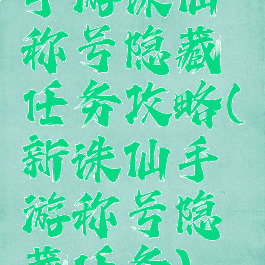 手游诛仙
称号隐藏
任务攻略(
新诛仙手
游称号隐
藏任务)